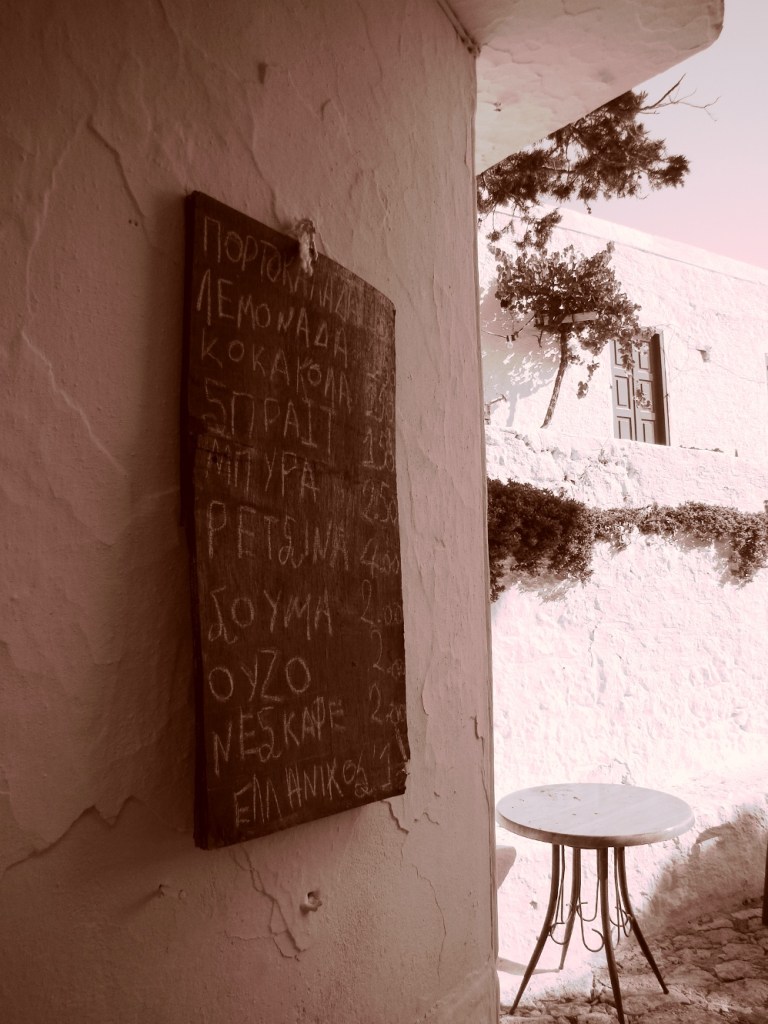 ΠΟΡΤΟΚΑΛΑΔΑ
ΛΕΜΟΝΑΔΑ
ΚΟΚΑΚΟΛΑ
ΣΠΡΑΙΤ
ΜΠΥΡΑ 2.50
ΡΕΤΣΙΝΑ 4.00
ΣΟΥΜΑ 2.00
ΟΥΖΟ 2.00
ΝΕΣΚΑΦΕ 2.00
ΕΛΛΗΝΙΚΟΣ